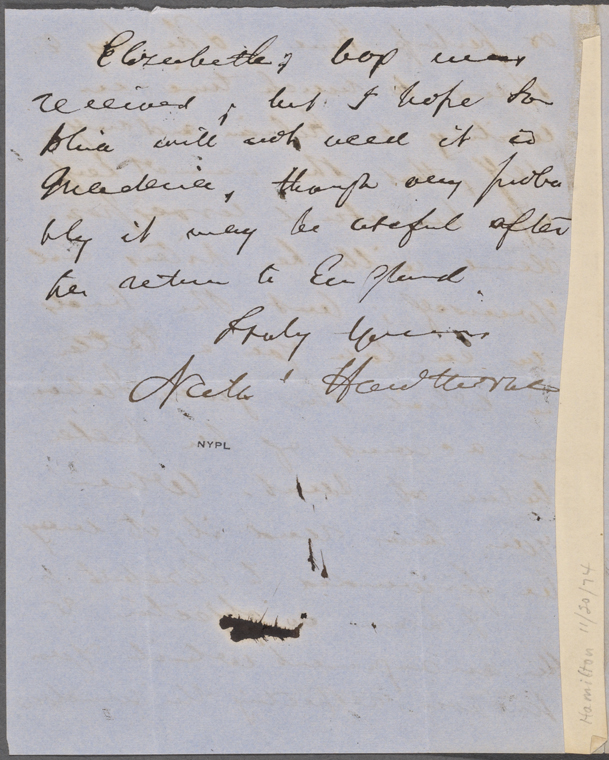 Elizabeth's box was
received; but I hope So
phia will not need it in
Madeira, though very proba
bly it may be useful after
her return to England.
Truly Yours
Nath' Hawthorne
NYPL
Hamilton 11/20/74